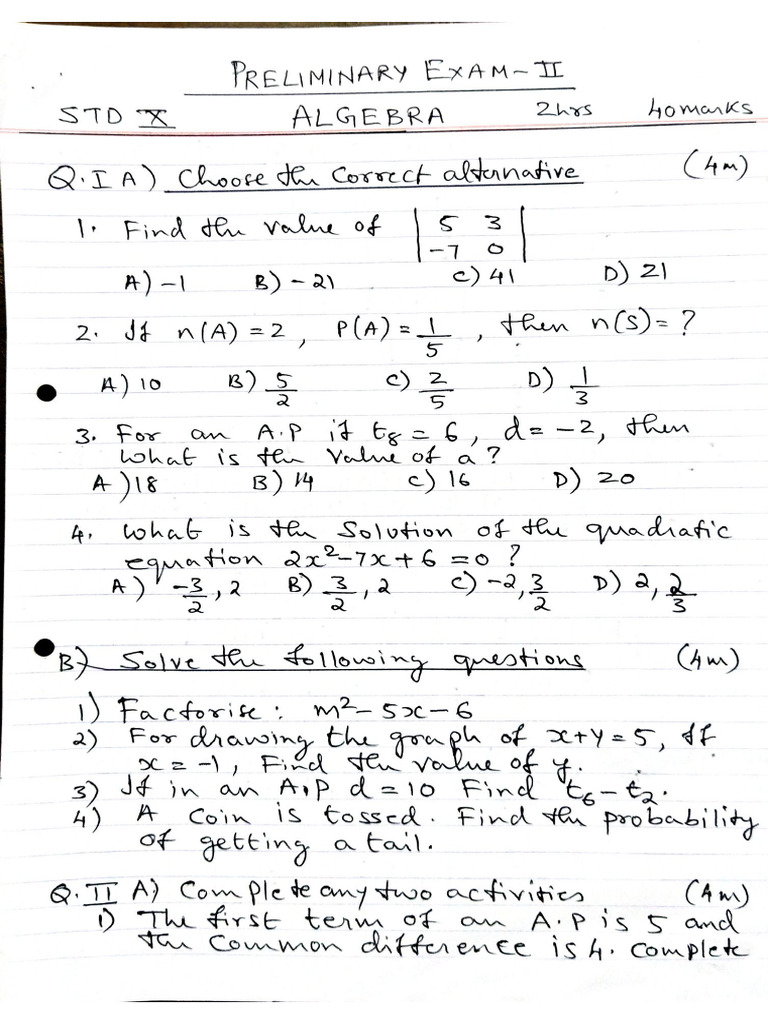 PRELIMINARY EXAM-II
STD X ALGEBRA 2hrs 40marks
Q.I A) Choose the correct alternative (4m)
1. Find the value of | 5 3 |
| -7 0 |
A) -1 B) -21 C) 41 D) 21
2. If n(A) = 2, P(A) = 1/5, then n(S) = ?
A) 10 B) 5/2 C) 2/5 D) 1/3
3. For an A.P if t₈ = 6, d = -2, then
what is the value of a?
A) 18 B) 14 C) 16 D) 20
4. What is the solution of the quadratic
equation 2x²-7x+6 = 0 ?
A) -3/2, 2 B) 3/2, 2 C) -2, 3/2 D) 2, 2/3
B) Solve the following questions (4m)
1) Factorise: m²-5x-6
2) For drawing the graph of x+y=5, If
x = -1, Find the value of y.
3) If in an A.P d = 10 Find t₆-t₂.
4) A coin is tossed. Find the probability
of getting a tail.
Q.II A) Complete any two activities (4m)
1) The first term of an A.P is 5 and
the common difference is 4. complete